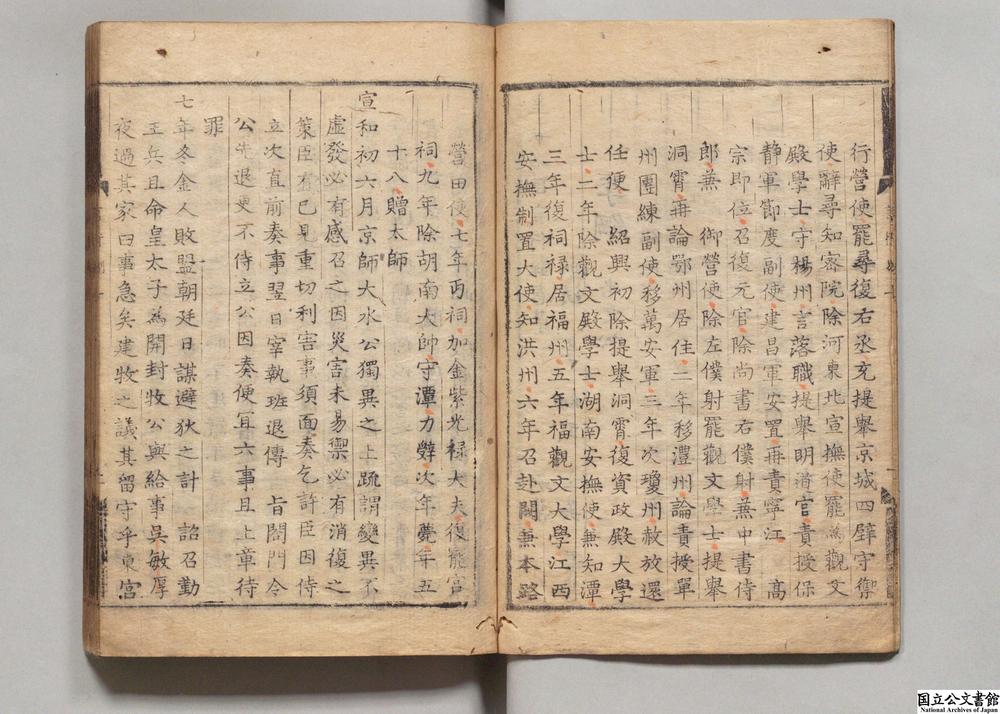 行營使罷尋復右丞充提舉京城四壁守禦
使辭尋知密院除河東北宣撫使罷為觀文
殿學士守楊州言落職提舉明道宮責授保
静軍節度副使建昌軍安置再責寧江 高
宗即位召復元官除尚書右僕射兼中書侍
郎兼 御營使除左僕射罷觀文學士提舉
洞霄再論鄂州居住二年移澧州論責授單
州團練副使移萬安軍三年次瓊州赦放還
任便 紹興初除提舉洞霄復資政殿大學
士二年除觀文殿學士湖南安撫使兼知潭
三年復祠祿居福州五年福觀文大學江西
安撫制置大使知洪州六年召赴闕兼本路
營田使七年丐祠加金紫光祿大夫復罷宮
祠九年除胡南大帥守潭力辭次年薨年五
十八贈太師
宣和初六月京師大水公獨異之上䟽謂變異不
虛發必有感召之因災害未易禦必有消復之
策臣有已見重切利害事須面奏乞許臣因侍
立次直前奏事翌日宰執班退傳 旨閤門令
公先退更不侍立公因奏便宜六事且上章待
罪
七年冬金人敗盟朝廷日謀避狄之計 詔召勤
王兵且命皇太子為開封牧公與給事吳敏厚
夜過其家曰事急矣建牧之議其留守乎東宮
国立公文書館
National Archives of Japan